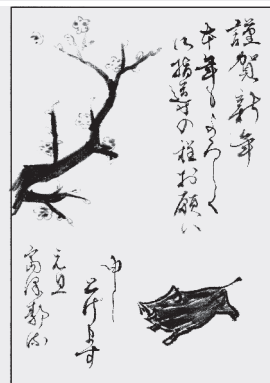 謹賀新年
本年もよろしく
御指導の程お願い
申し
上げます
元旦